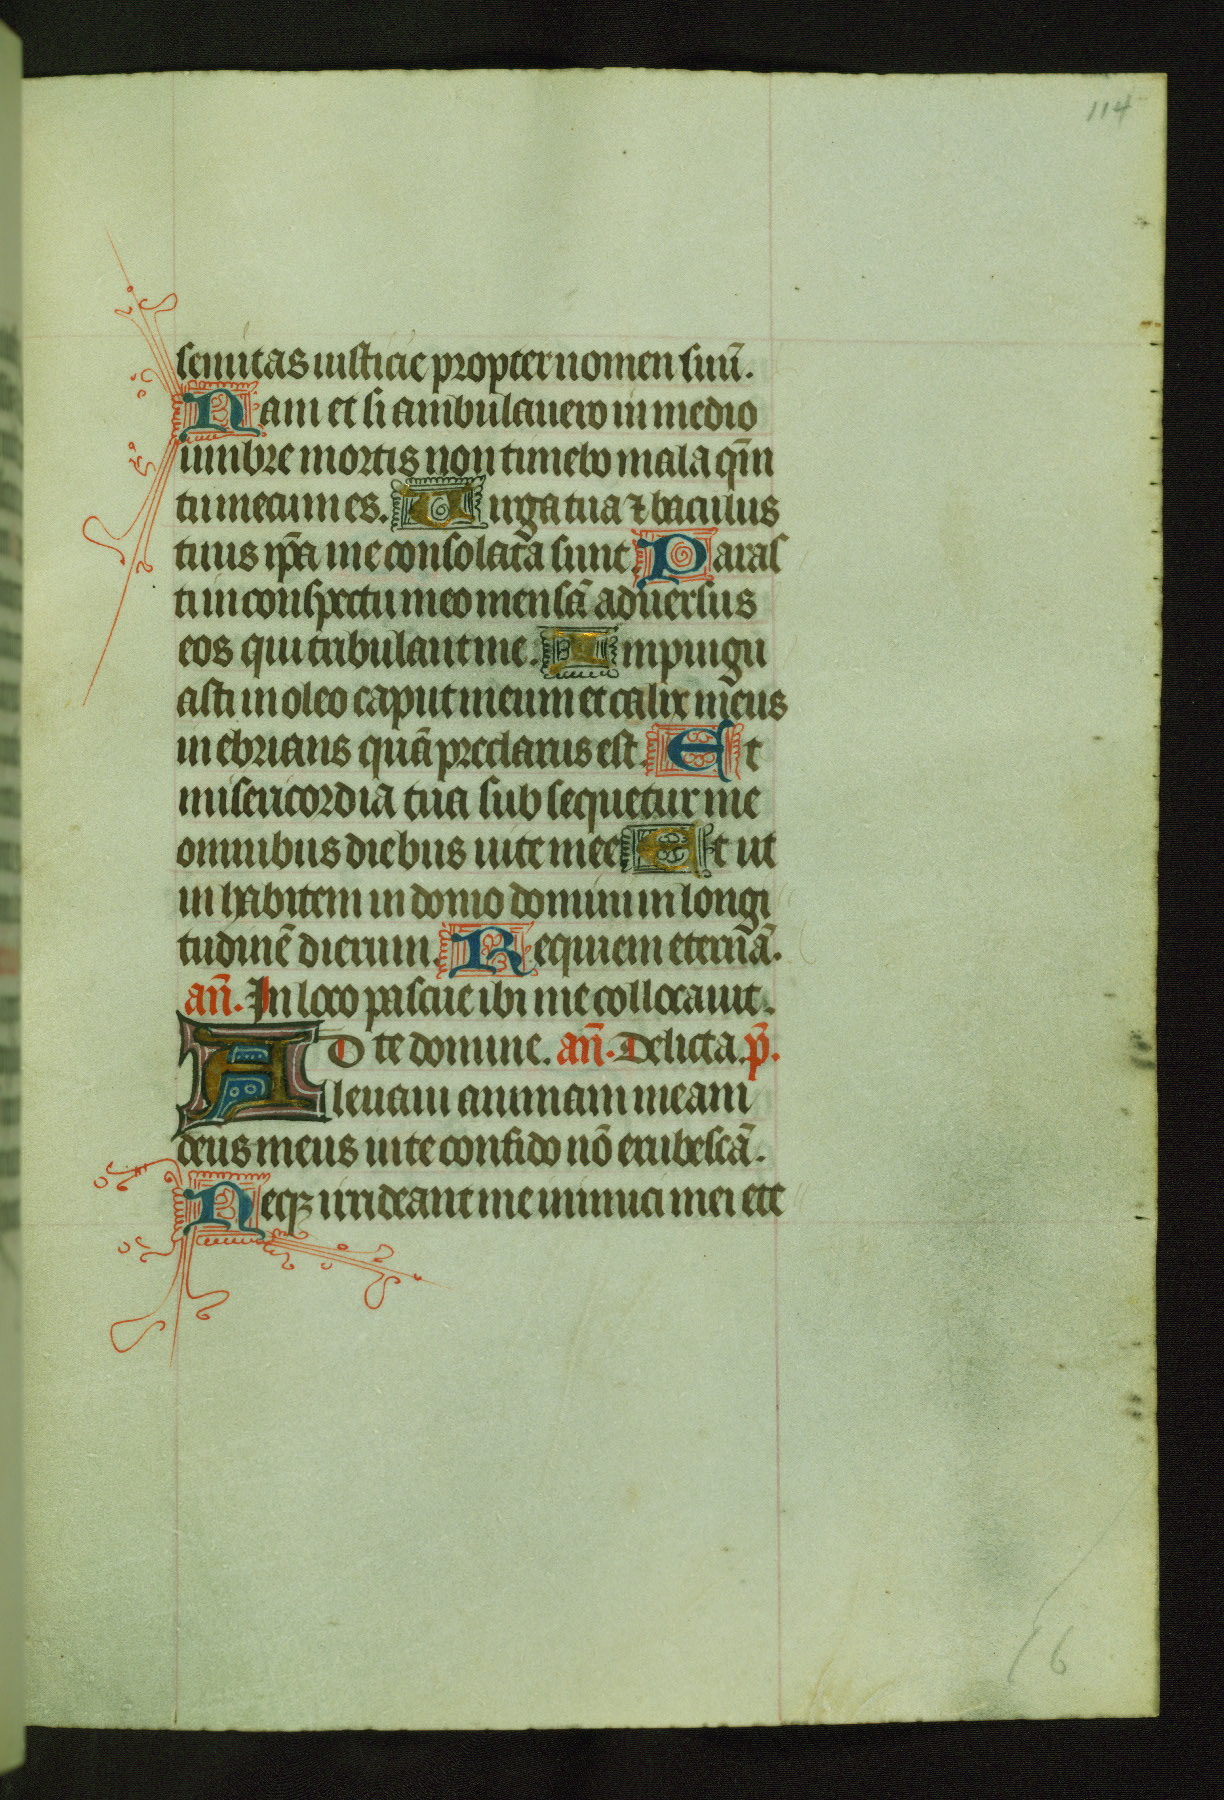 114
semitas iusticie propter nomen suū.
Nam et si ambulauero in medio
umbre mortis non timebo mala qm̄
tu mecum es. Uirga tua ⁊ baculus
tuus ip̄a me consolata sunt. Paras
ti in conspectu meo mensā aduersus
eos qui tribulant me. Impingu
asti in oleo caput meum et calix meus
inebrians quā preclarus est. Et
misericordia tua subsequetur me
omnibus diebus uite mee Et ut
inhabitem in domo domini in longi
tudinē dierum. Requiem eternā.
an̄. In loco pascue ibi me collocauit.
AD te domine. an̄. Delicta. p̄.
leuaui animam meam
deus meus in te confido nō erubescā.
Neqꝫ irrideant me inimici mei ete
16